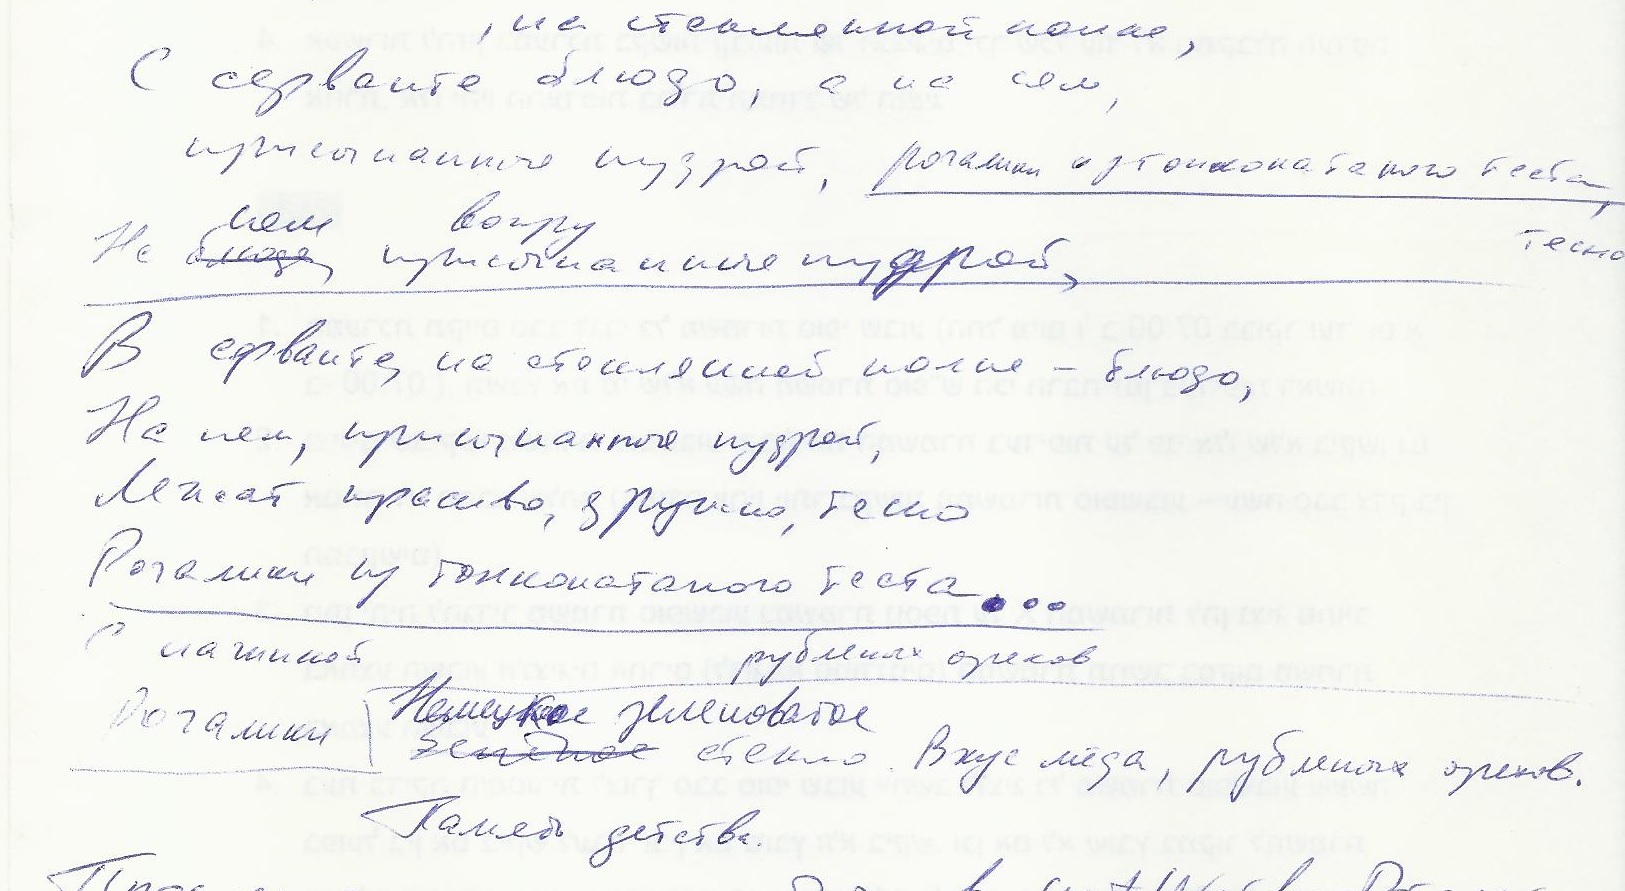 , на стеклянной полке,
С серванте блюдо, а на нем,
присыпанные пудрой, рогалики из тонкокатаного теста,
тесно
нем вокру
На блюде, присыпанные пудрой,
В серванте, на стеклянной полке – блюдо,
На нем, присыпанные пудрой,
Лежат красиво, дружно, тесно
Рогалики из тонкокатаного теста...
С начинкой рубленых орехов
Рогалики Немецкое зеленоватое
Зелёное стекло. Вкус меда, рубленых орехов.
Память детства.